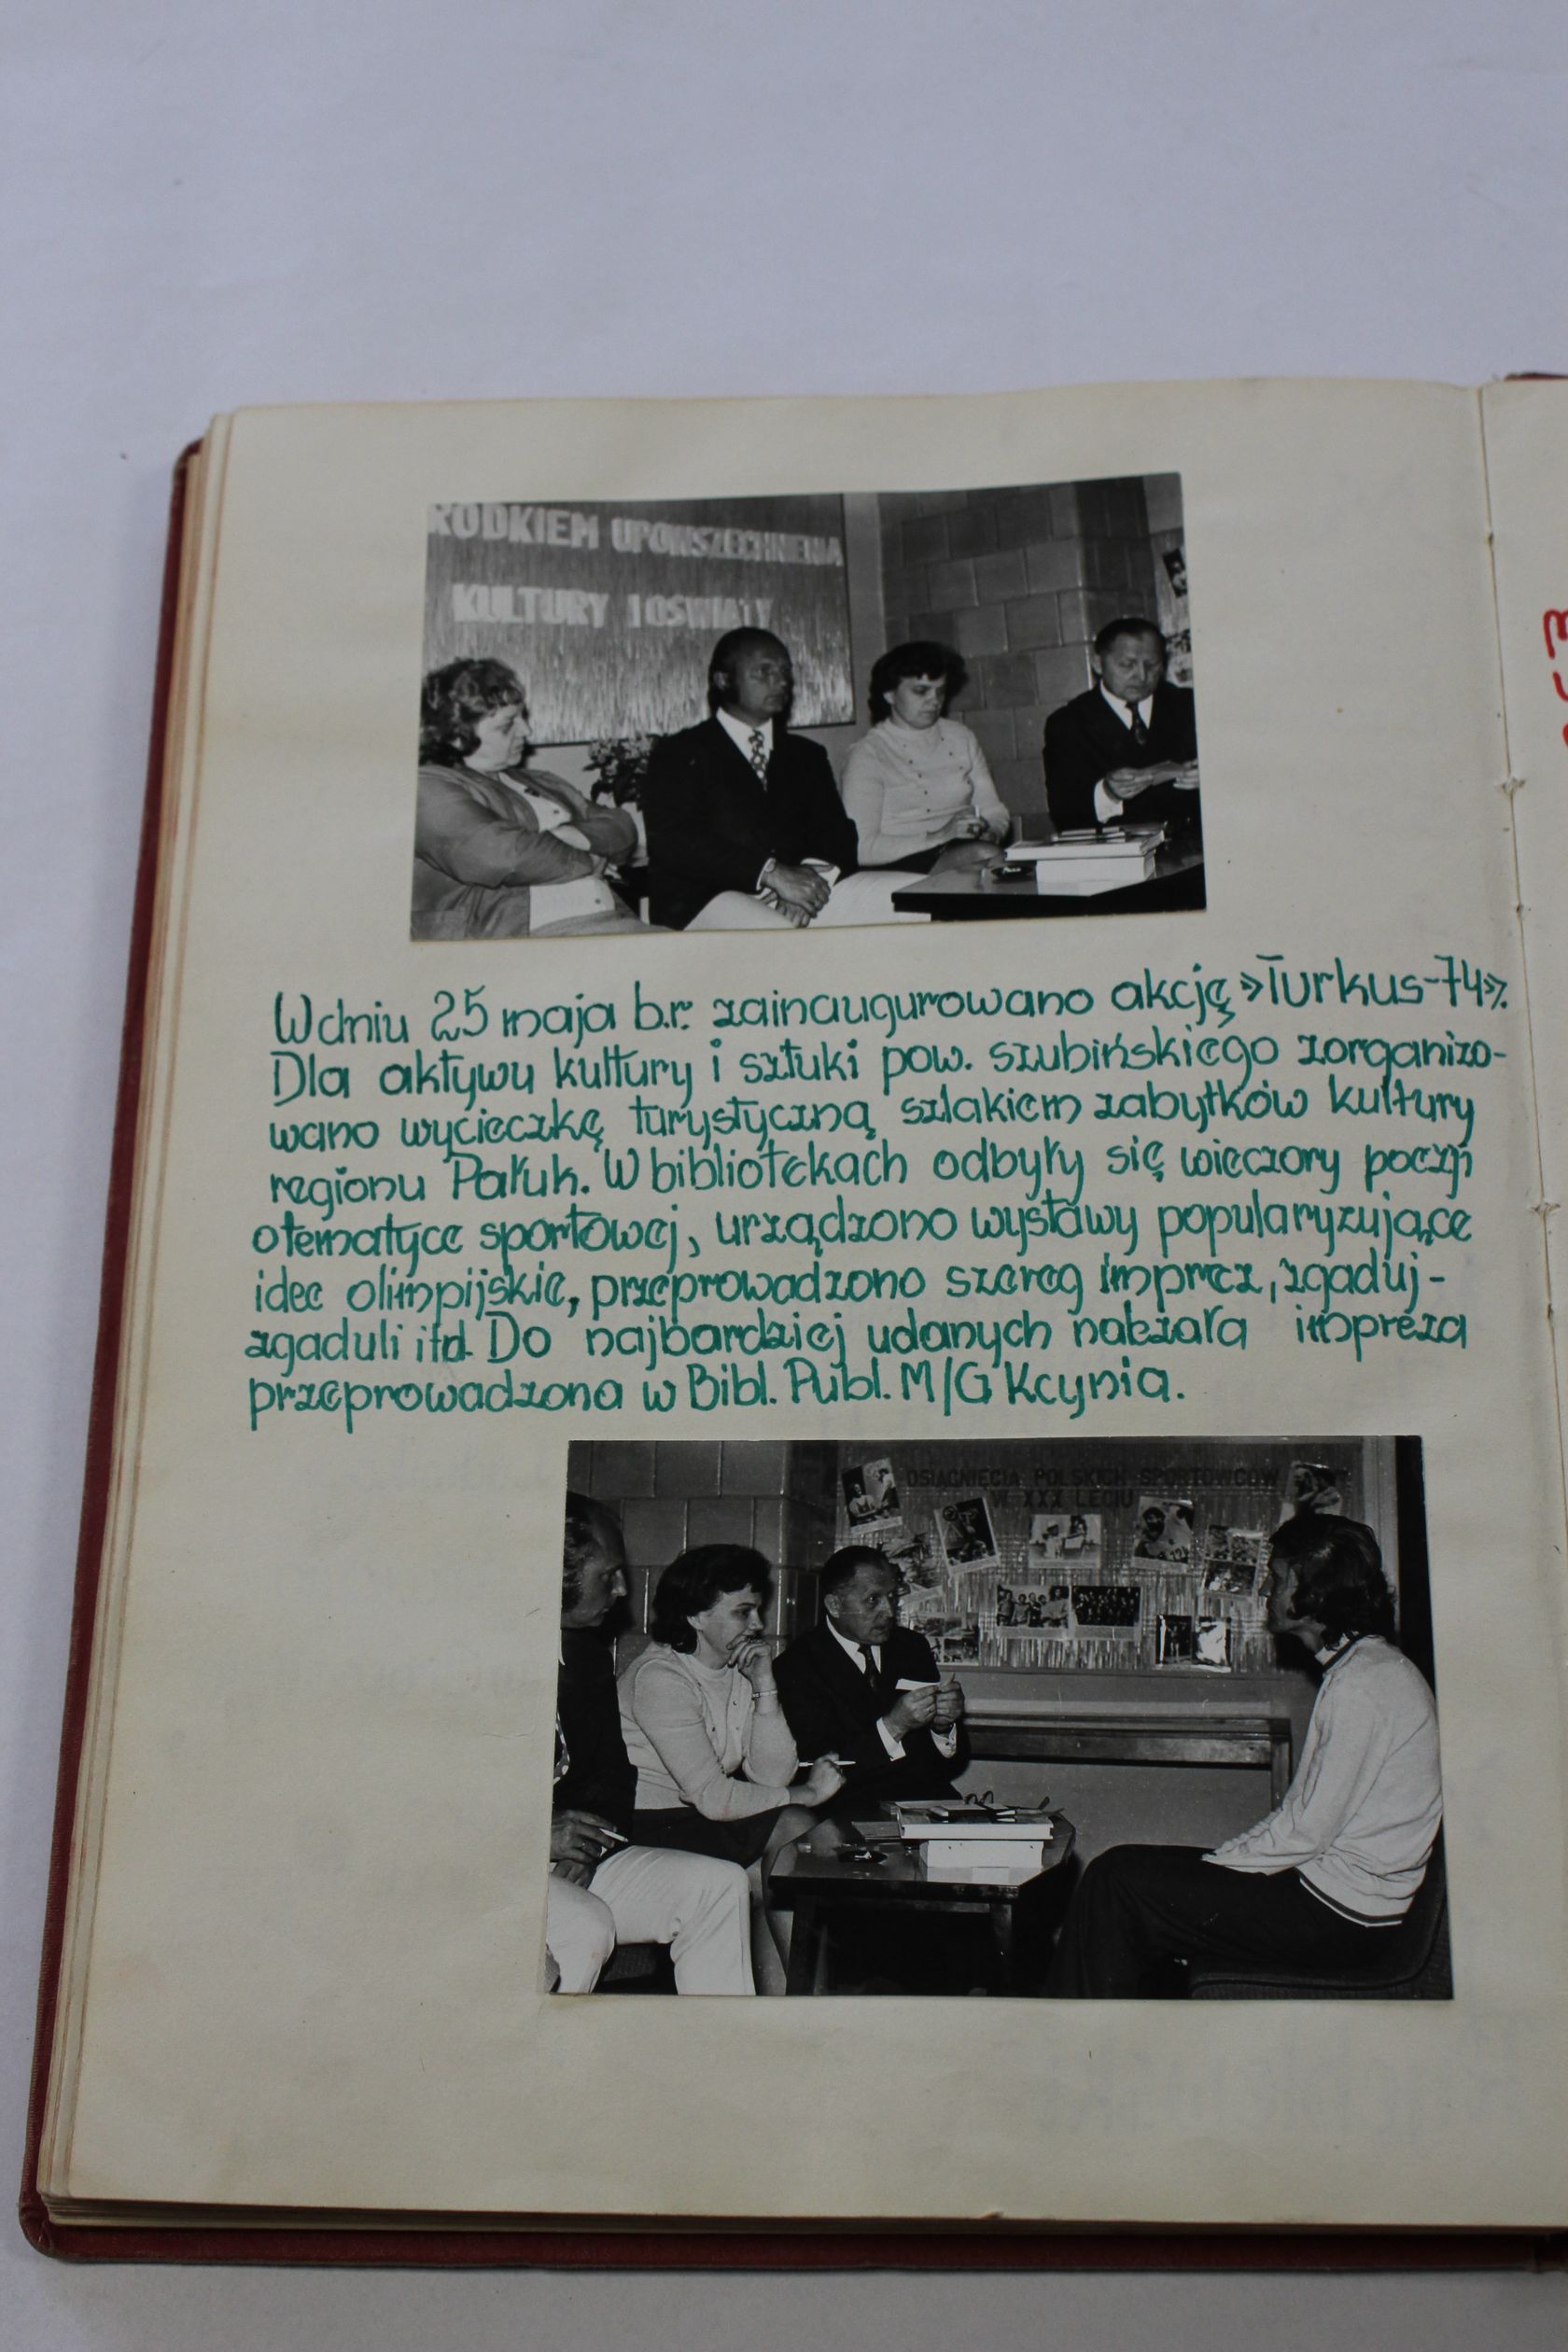 RODKIEM UPOWSZECHNIENIA
KULTURY I OŚWIATY
W dniu 25 maja b.r. zainaugurowano akcję »Turkus-74».
Dla aktywu kultury i sztuki pow. szubińskiego zorganizo-
wano wycieczkę turystyczną szlakiem zabytków kultury
regionu Pałuk. W bibliotekach odbyły się wieczory poezji
o tematyce sportowej, urządzono wystawy popularyzujące
idee olimpijskie, przeprowadzono szereg imprez, zgaduj-
zgaduli itd. Do najbardziej udanych należała impreza
przeprowadzona w Bibl. Publ. M/G Kcynia.
OSIĄGNIĘCIA POLSKICH SPORTOWCÓW
W XXX LECIU